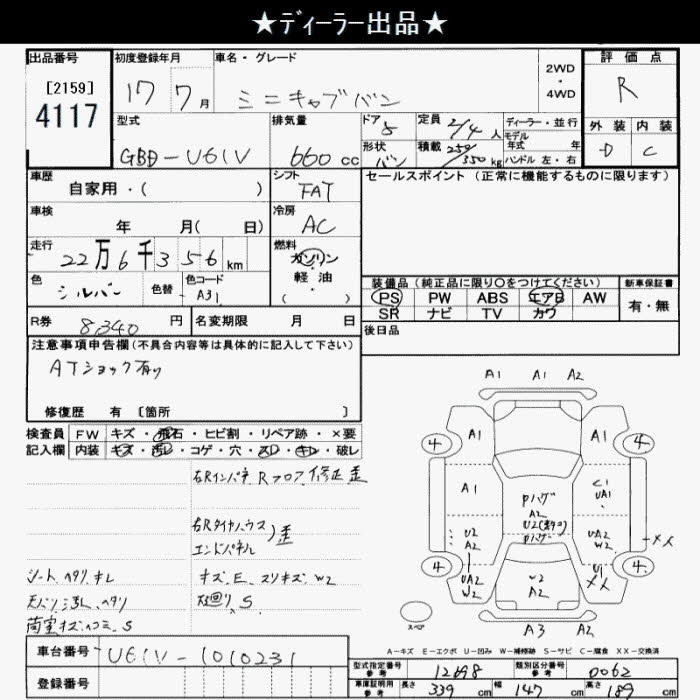 ★ディーラー出品★
出品番号
[2159]
4117
初度登録年月
17 7月
車名・グレード
ミニキャブバン
2WD
・
4WD
評価点
R
型式
GBD-U61V
排気量
660 cc
ドア
5
形状
バン
定員 2/4 人
積載 250/350 kg
ディーラー・並行
モデル
年式 年
ハンドル 左・右
外装 内装
D C
車歴
自家用・( )
シフト
FAT
セールスポイント(正常に機能するものに限ります)
車検
年 月( 日)
冷房
AC
走行
22万6千356 km
燃料
ガソリン
・
軽油
・
( )
色
シルバー
色替
色コード
A31
装備品(純正品に限り○をつけてください)
新車保証書
PS PW ABS エアB AW
SR ナビ TV カワ
有・無
R券
8,340 円
名変期限 月 日
後日品
注意事項申告欄(不具合内容等は具体的に記入して下さい)
ATショック有り
修復歴 有 〔箇所 〕
検査員
記入欄
FW キズ・飛石・ヒビ割・リペア跡・×要
内装 キズ・汚レ・コゲ・穴・スレ・キレ・破レ
右Rインパネ Rフロア 修正 歪
右Rタイヤハウス
エンドパネル
)歪
シート ヘタリ キレ
キズ、E、スリキズ、W2
天バリ汚レ、ヘタリ
下廻り、S
荷室キズヘコミ、S
A1 A1 A2
4 A1 A1 4
A1
Pハゲ
A2
U2
Pハゲ
C1
UA1
U2
A2
UA2
W2
メス
4 4
UA2
W2
W2
A2
U1
メス
スペア
A3 A2
A-キズ E-エクボ U-凹み W-補修跡 S-サビ C-腐食 XX-交換済
車台番号
U61V-1010231
登録番号
型式指定番号
参考
12698
類別区分番号
参考
0062
車庫証明用
参考
長さ 339 cm
幅 147 cm
高さ 189 cm